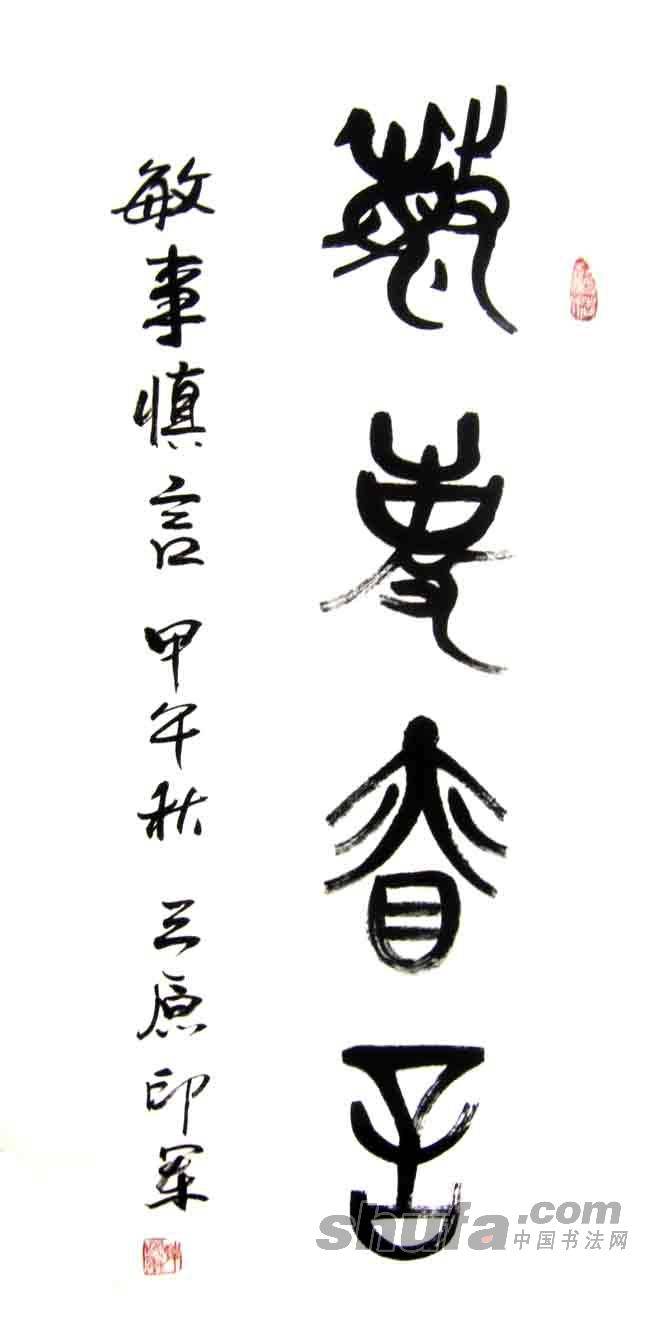 敏事慎言
敏事慎言 甲午秋 三原印军
shufa.com
中国书法网